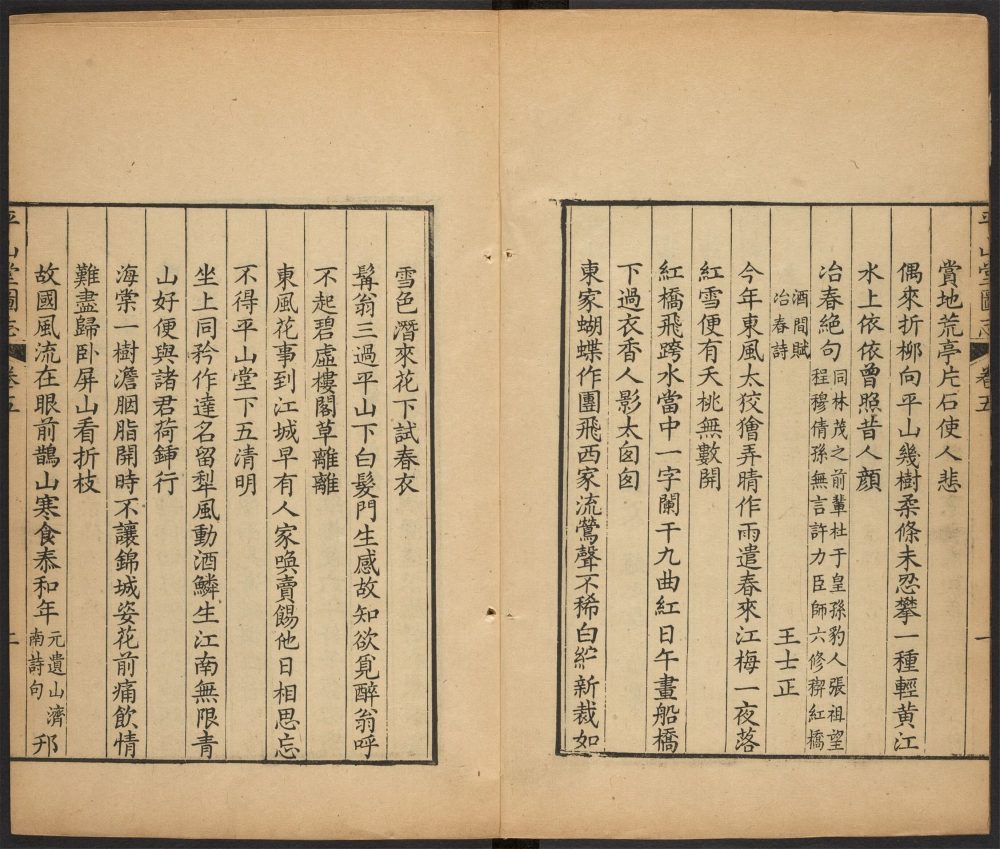 平山堂圖志 卷五 一
賞地荒亭片石使人悲
偶來折柳向平山幾樹柔條未忍攀一種輕黃江
水上依依曾照昔人顏
冶春絕句 同林茂之前輩杜于皇孫豹人張祖望
程穆倩孫無言許力臣師六修禊紅橋
酒間賦
冶春詩
王士正
今年東風太狡獪弄晴作雨遣春來江梅一夜落
紅雪便有夭桃無數開
紅橋飛跨水當中一字闌干九曲紅日午畫船橋
下過衣香人影太匆匆
東家蝴蝶作團飛西家流鶯聲不稀白紵新裁如
雪色潛來花下試春衣
髯翁三過平山下白髮門生感故知欲覓醉翁呼
不起碧虛樓閣草離離
東風花事到江城早有人家喚賣餳他日相思忘
不得平山堂下五清明
坐上同矜作達名留犁風動酒鱗生江南無限青
山好便與諸君荷鍤行
海棠一樹澹胭脂開時不讓錦城姿花前痛飲情
難盡歸卧屏山看折枝
故國風流在眼前鵲山寒食泰和年 元遺山濟
南詩句
邗
平山堂圖志 卷五 二